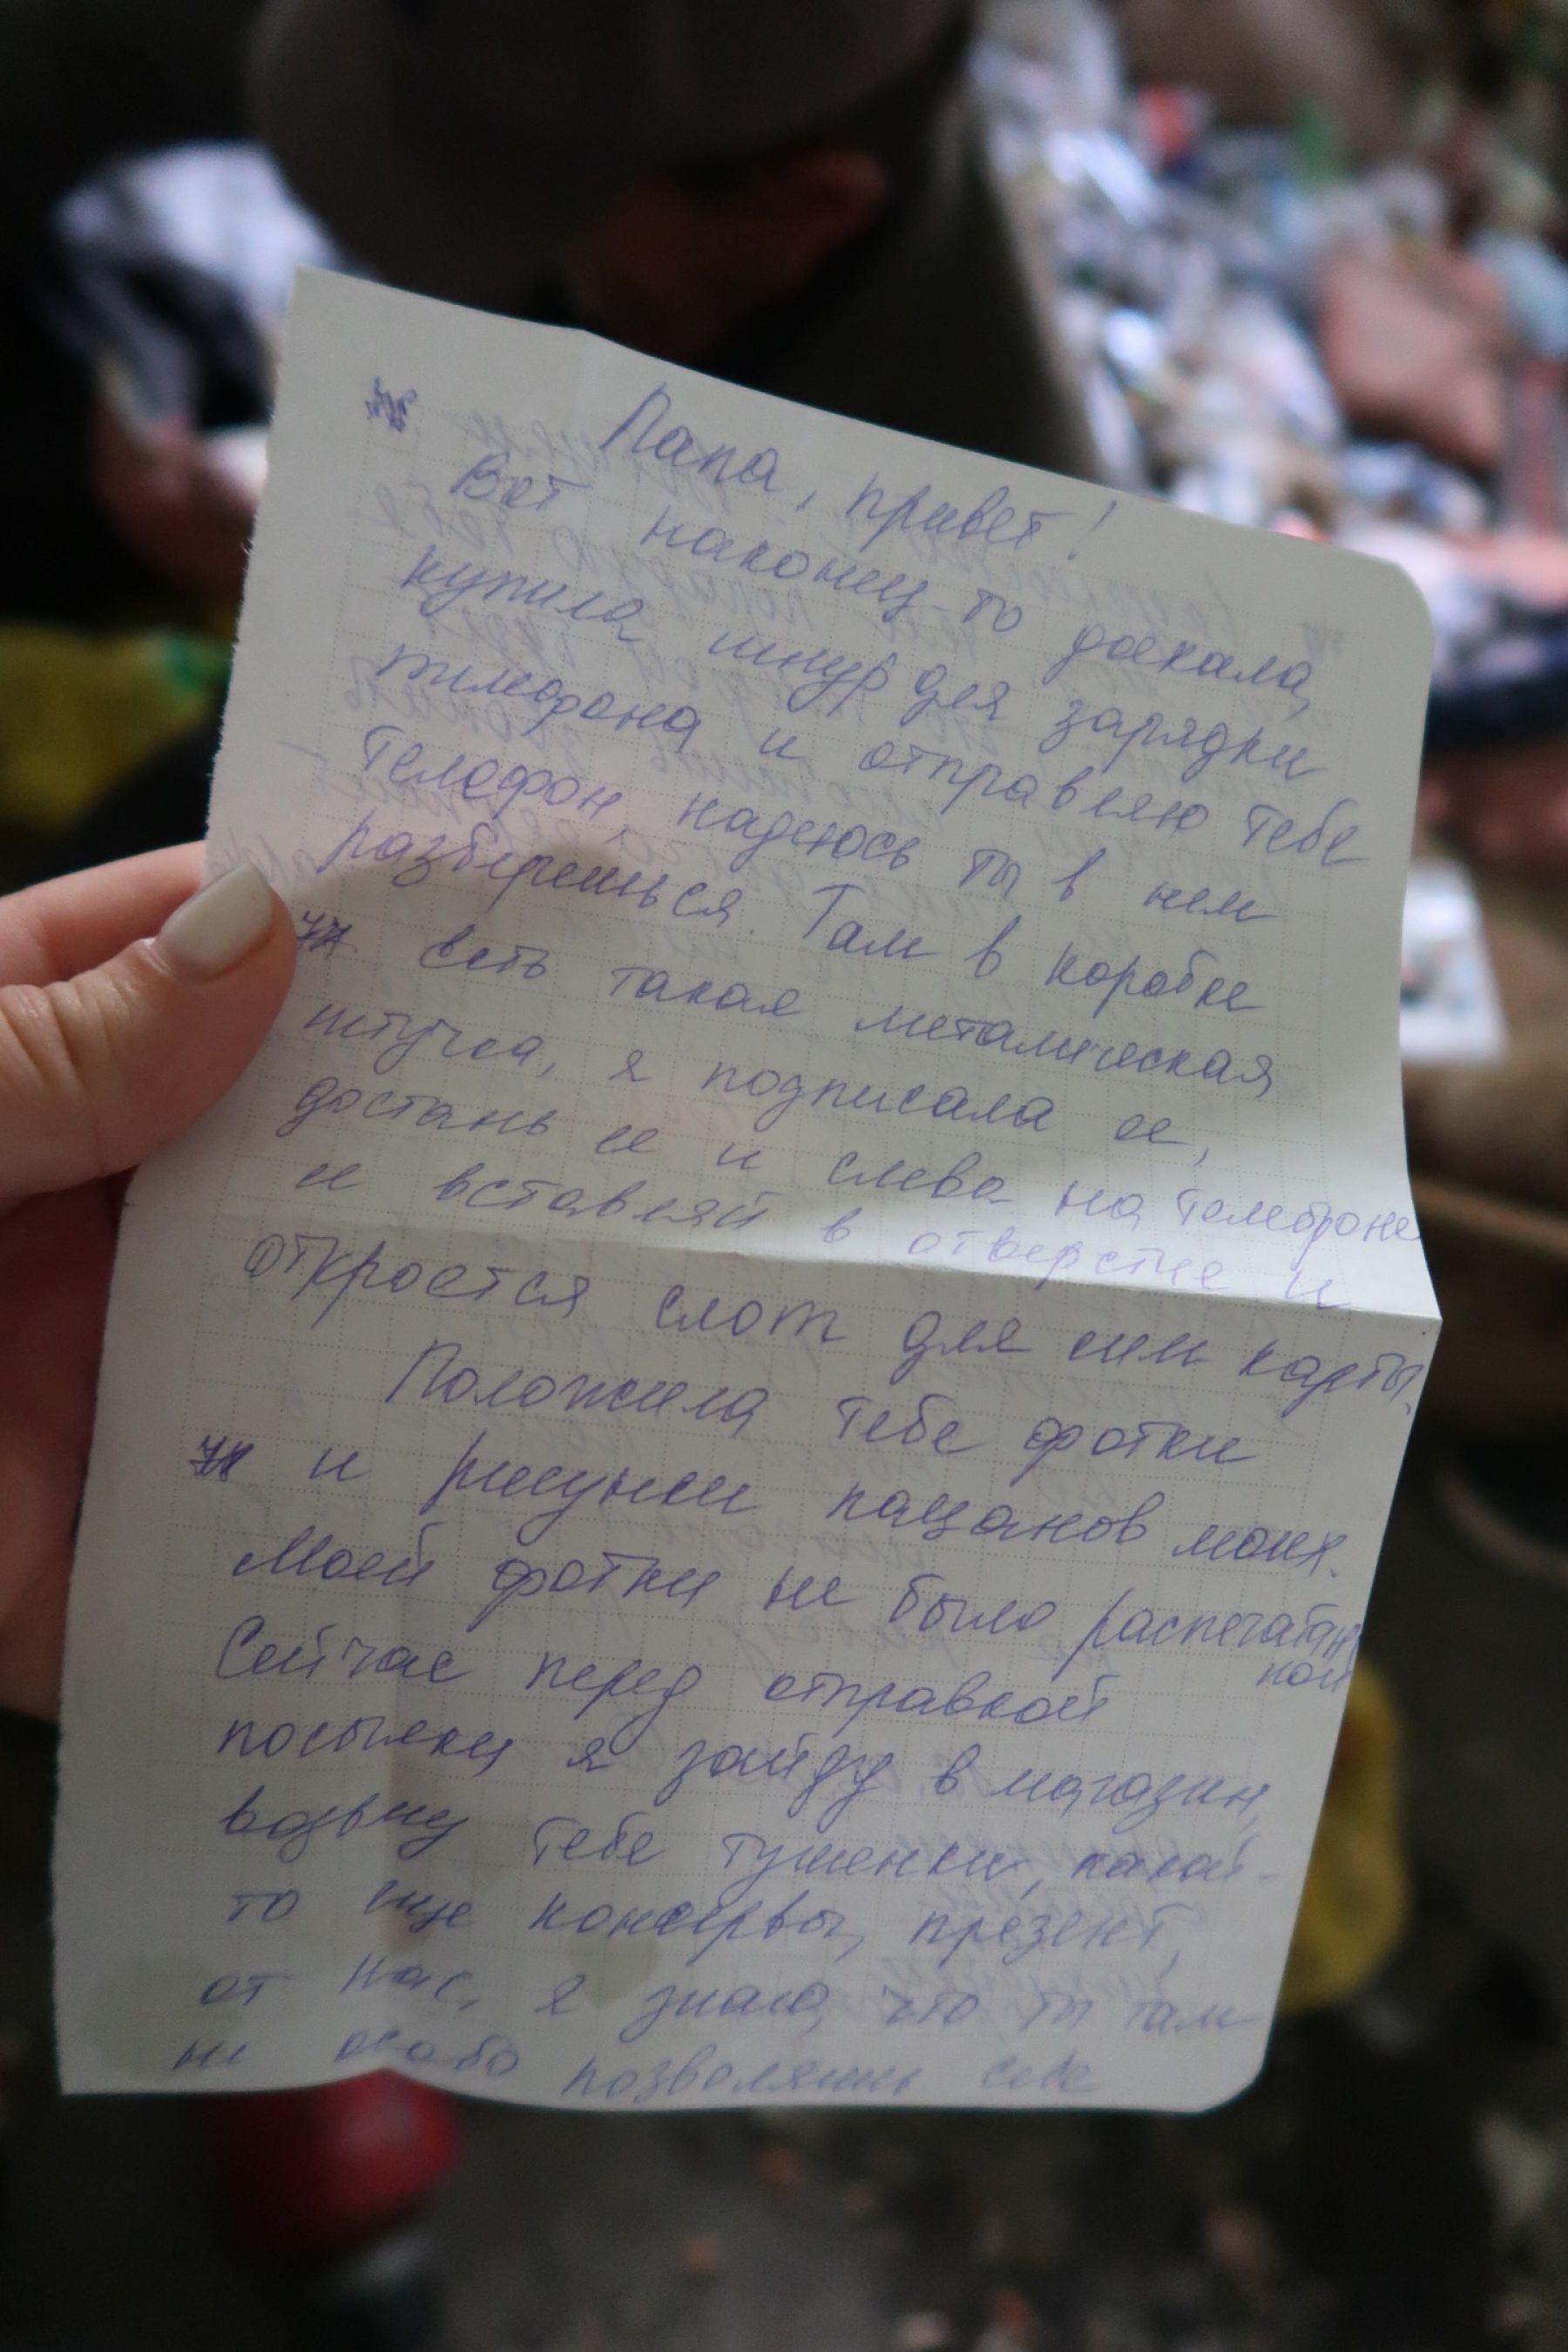 Папа, привет!
Вот наконец-то доехала,
купила шнур для зарядки
телефона и отправляю тебе
телефон, надеюсь ты в нем
разберешься. Там в коробке
есть такая металическая
штучка, я подписала ее,
достань ее и слева на телефоне
ее вставляй в отверстие и
откроется слот для сим карты.
Положила тебе фотки
и рисунки пацанов моих.
Моей фотки не было распечатан
ной
Сейчас перед отправкой
посылки я зайду в магазин,
возьму тебе тушенки, какой-
то еще консервы, презент,
от нас, я знаю, что ты там
не особо позволяешь себе